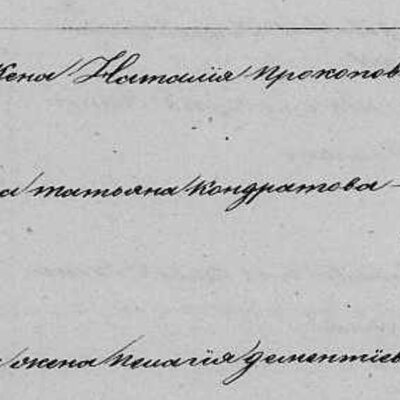 жена Наталія Прокопов
а татьяна Кондратова -
жена Пелагія Дементіев